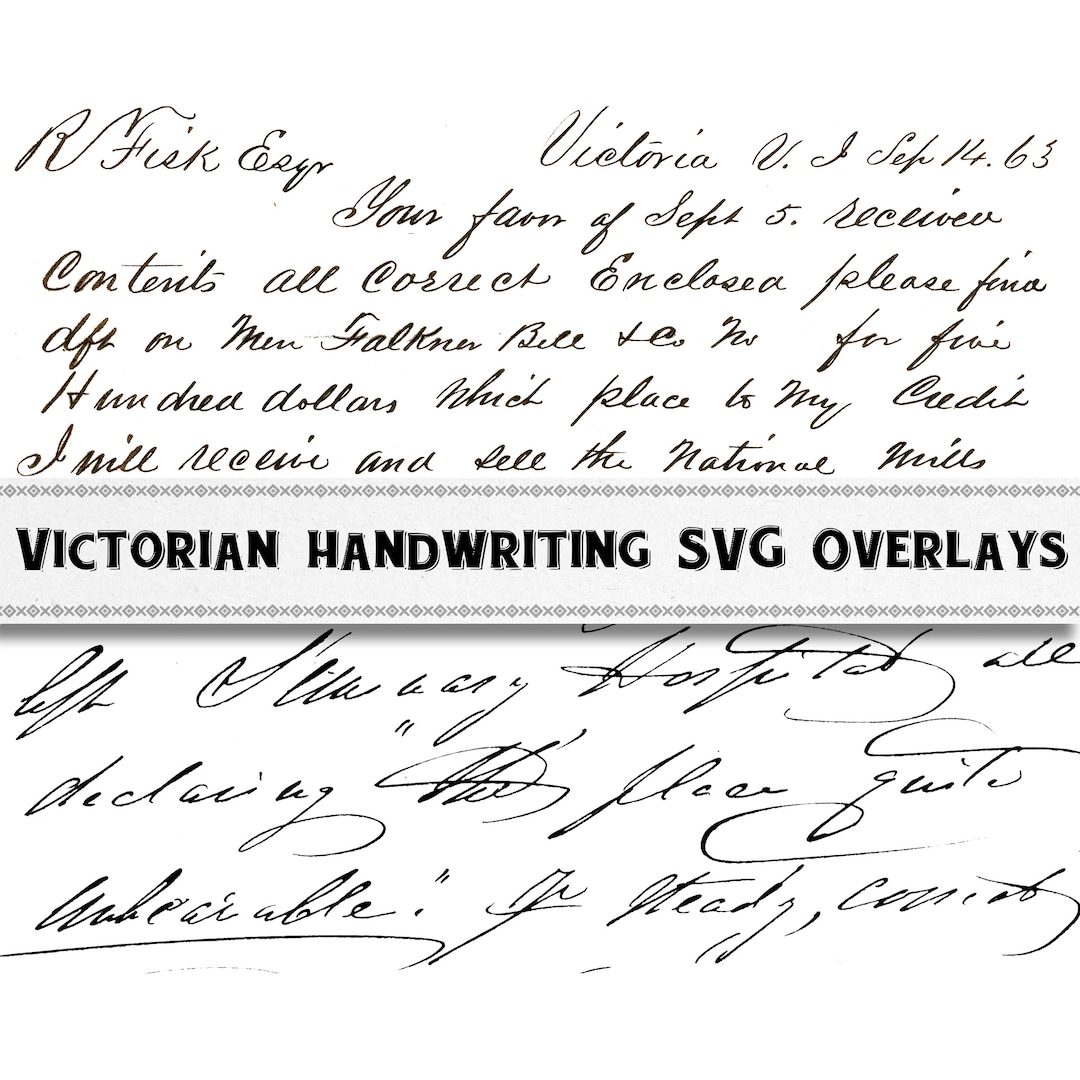 R Fisk Esqr Victoria V. I Sep 14. 63
Your favor of Sept 5. received
Contents all Correct Enclosed please find
dft on Falkner Bell & Co No for five
Hundred dollars which place to My Credit
I will receive and sell the National Mills
VICTORIAN HANDWRITING SVG OVERLAYS
left Hospital, all
declaring "the place quite
unbearable". steady,